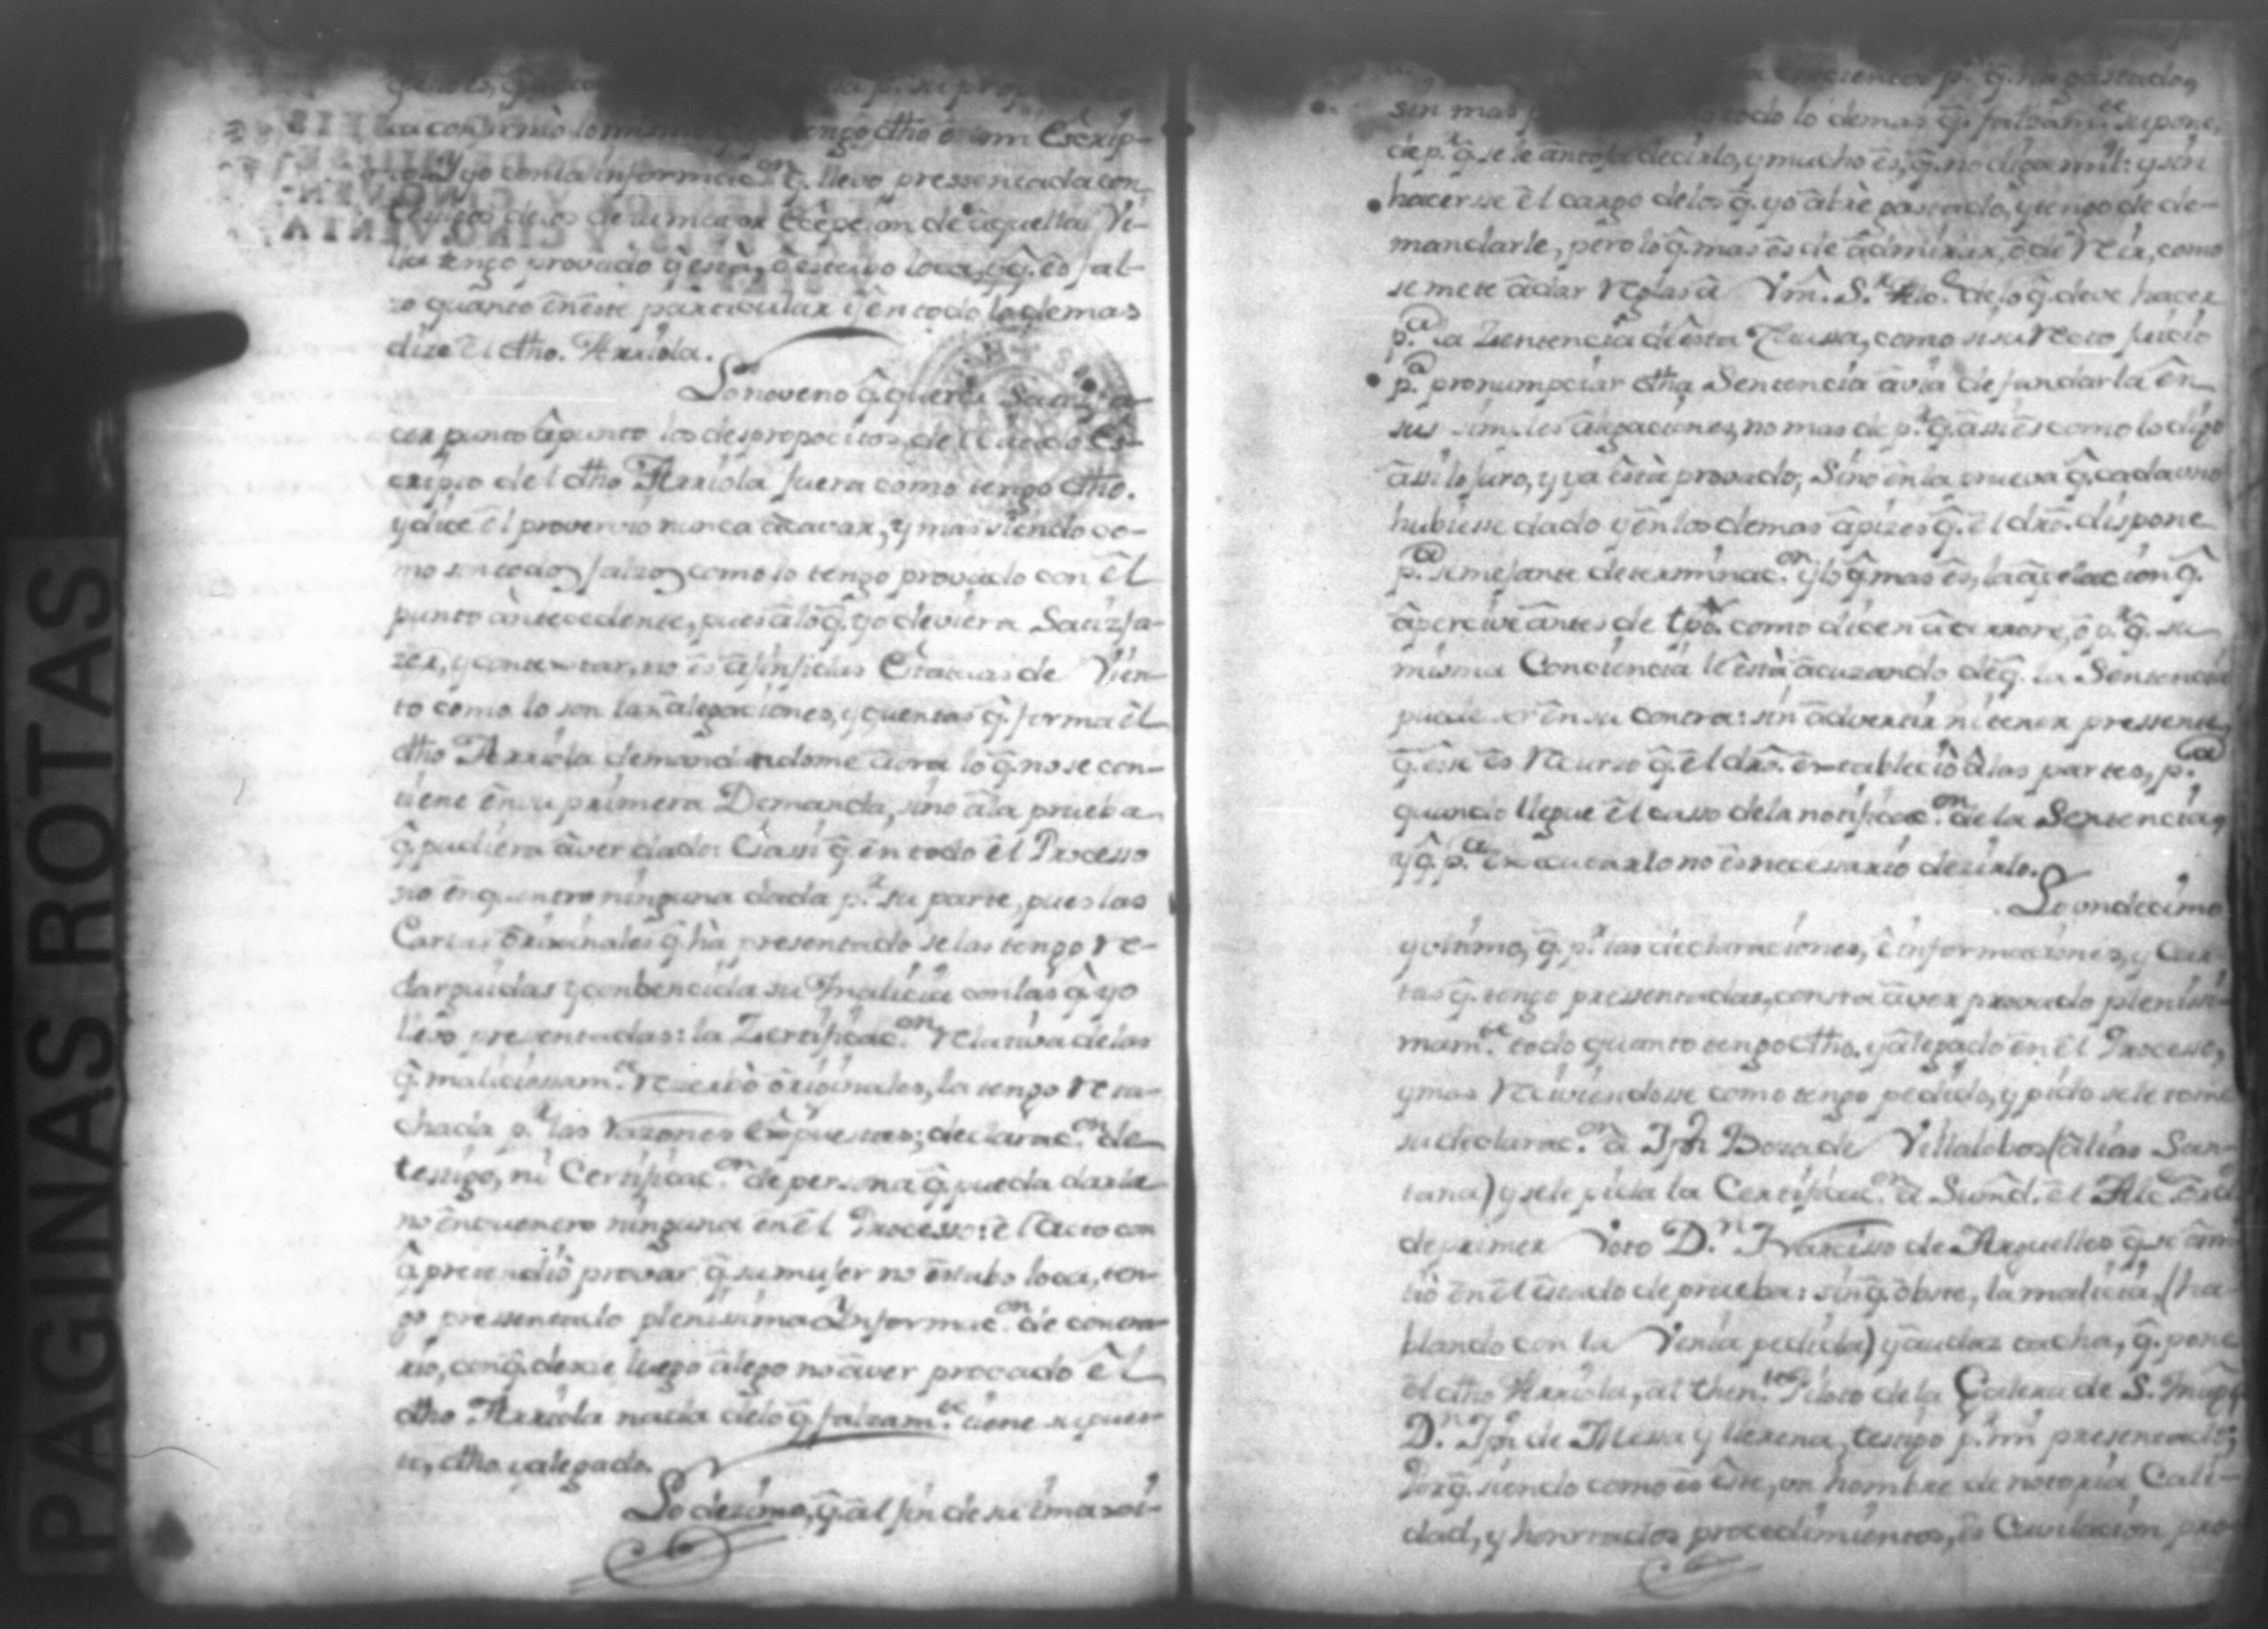 PAGINAS ROTAS
p.r su prop
la confirmò lo mismo tengo dho en mi Escrip-
to. Y yo con la informac.on q̂. llevo pressentada con
testigos de los de la maior Ecepcion de aquella Vi-
lla tengo provado q̂ está, ô estuvo loca, y q̂. ês fal-
zo quanto ên êste particular y ên todo lo demas
dize êl dho. Arriola.
Lo noveno q̂. querer Satizfa-
cer punto â punto los despropocitos, de el citado Es-
cripto del dho Arriola fuera como tengo dho.
y dice êl provervio nunca âcavar, y mas siendo co-
mo son todos falzos como lo tengo provado con êl
punto ântecedente, pues â lo q̂. yo deviera Satizfa-
zer, y contextar, no ês â sinfidas Estatuas de Vien-
to como lo son las âlegaciones, y quentas q̂. forma êl
dho Arriola demandandome âora lo q̂. no se con-
tiene ên su primera Demanda, sino â la prueba
q̂. pudiera âver dado: Cassi q̂. ên todo êl Processo
no ênquentro ninguna dada p.r su parte, pues las
Cartas ôriginales q̂. ha presentado se las tengo re-
darguidas y conbencida su malicia con las q̂. yo
llevo presentadas: la Zertificac.on relativa de las
q̂. maliciosam.te rezervò ôriginales, la tengo reta-
chada p.r las razones êxpuestas; declarac.on de
testigo, ni Certificac.on de persona q̂. pueda darla
no ênquentro ninguna ên êl Processo: êl Auto con
q̂ pretendiò provar q̂. su mujer no êstubo loca, ten-
go pressentado plenissima Informac.on de contra-
rio, con q̂. desde luego âlego no âver provado êl
dho Arriola nada de lo q̂ falzam.te tiene supues-
to, dho y alegado.
Lo dezimo, q̂. al fin de su
p.r q̂. ha gastado,
sin mas todo lo demas q̂. falzam.te supone,
de p.r q̂. se le ântoja decirlo, y mucho ês, q̂. no diga mil: y sin
hacerse êl cargo de los q̂. yo âbrè gastado, y tengo de de-
mandarle, pero lo q̂. mas ês de âdmirar, ô de reir, como
se mete â dar reglas â Vm̂. S.r Alc.e de lo q̂. deve hacer
p.a la Zentencia de êsta Caussa, como si su recto juicio
p.a pronumpciar dha Sentencia âvia de fundarla ên
sus simples âlegaciones, no mas de p.r q̂. âssi ês como lo digo
âssi lo juro, y ya êstà provado; Sino ên la prueva q̂. cada uno
hubiesse dado y ên los demas âpizes q̂. êl dro. dispone
p.a semejante determinac.on y lo q̂. mas ês, la âpelacion q̂.
âpercive ântes de tpo. como dicen ô p.r q̂. su
misma Conciencia lè êstà âcuzando de q̂. la Sentencia
puede ser ên su contra: sin âdvertir ni tener pressente,
q̂. êsse ês recurso q̂. êl dro. êstableciò â las partes, p.a
quando llegue êl casso de la notificac.on de la Sentencia,
y q̂. p.a êxecutarlo no ês necessario dezirlo.
Lo undecimo
y ultimo, q̂. p.r las declaraciones, ê informaciones, y Car-
tas q̂. tengo pressentadas, consta âver provado plenissi-
mam.te todo quanto tengo dho. y âlegado ên êl Processo,
y mas reciviendosse como tengo pedido, y pido se le tome
su declarac.on â Jph de Villalobos (âlias San-
tana) y se le pida la Certificac.on â Su md. êl Alc.e
de primer Voto D.n Narcisso de Arguelles q̂. se ômi-
tiò ên êl êstado de prueba: sin q̂. ôbste, la malicia, (ha-
blando con la Venia pedida) y âudaz tacha, q̂. pone
êl dho Arriola, al then.te Piloto de la Galera de S. Mig.l
D.n Jph de Messa y llerena, testigo p.r mi presentado;
Porq̂. siendo como ês êste, un hombre de notoria Cali-
dad, y honrrados procedimientos, ês